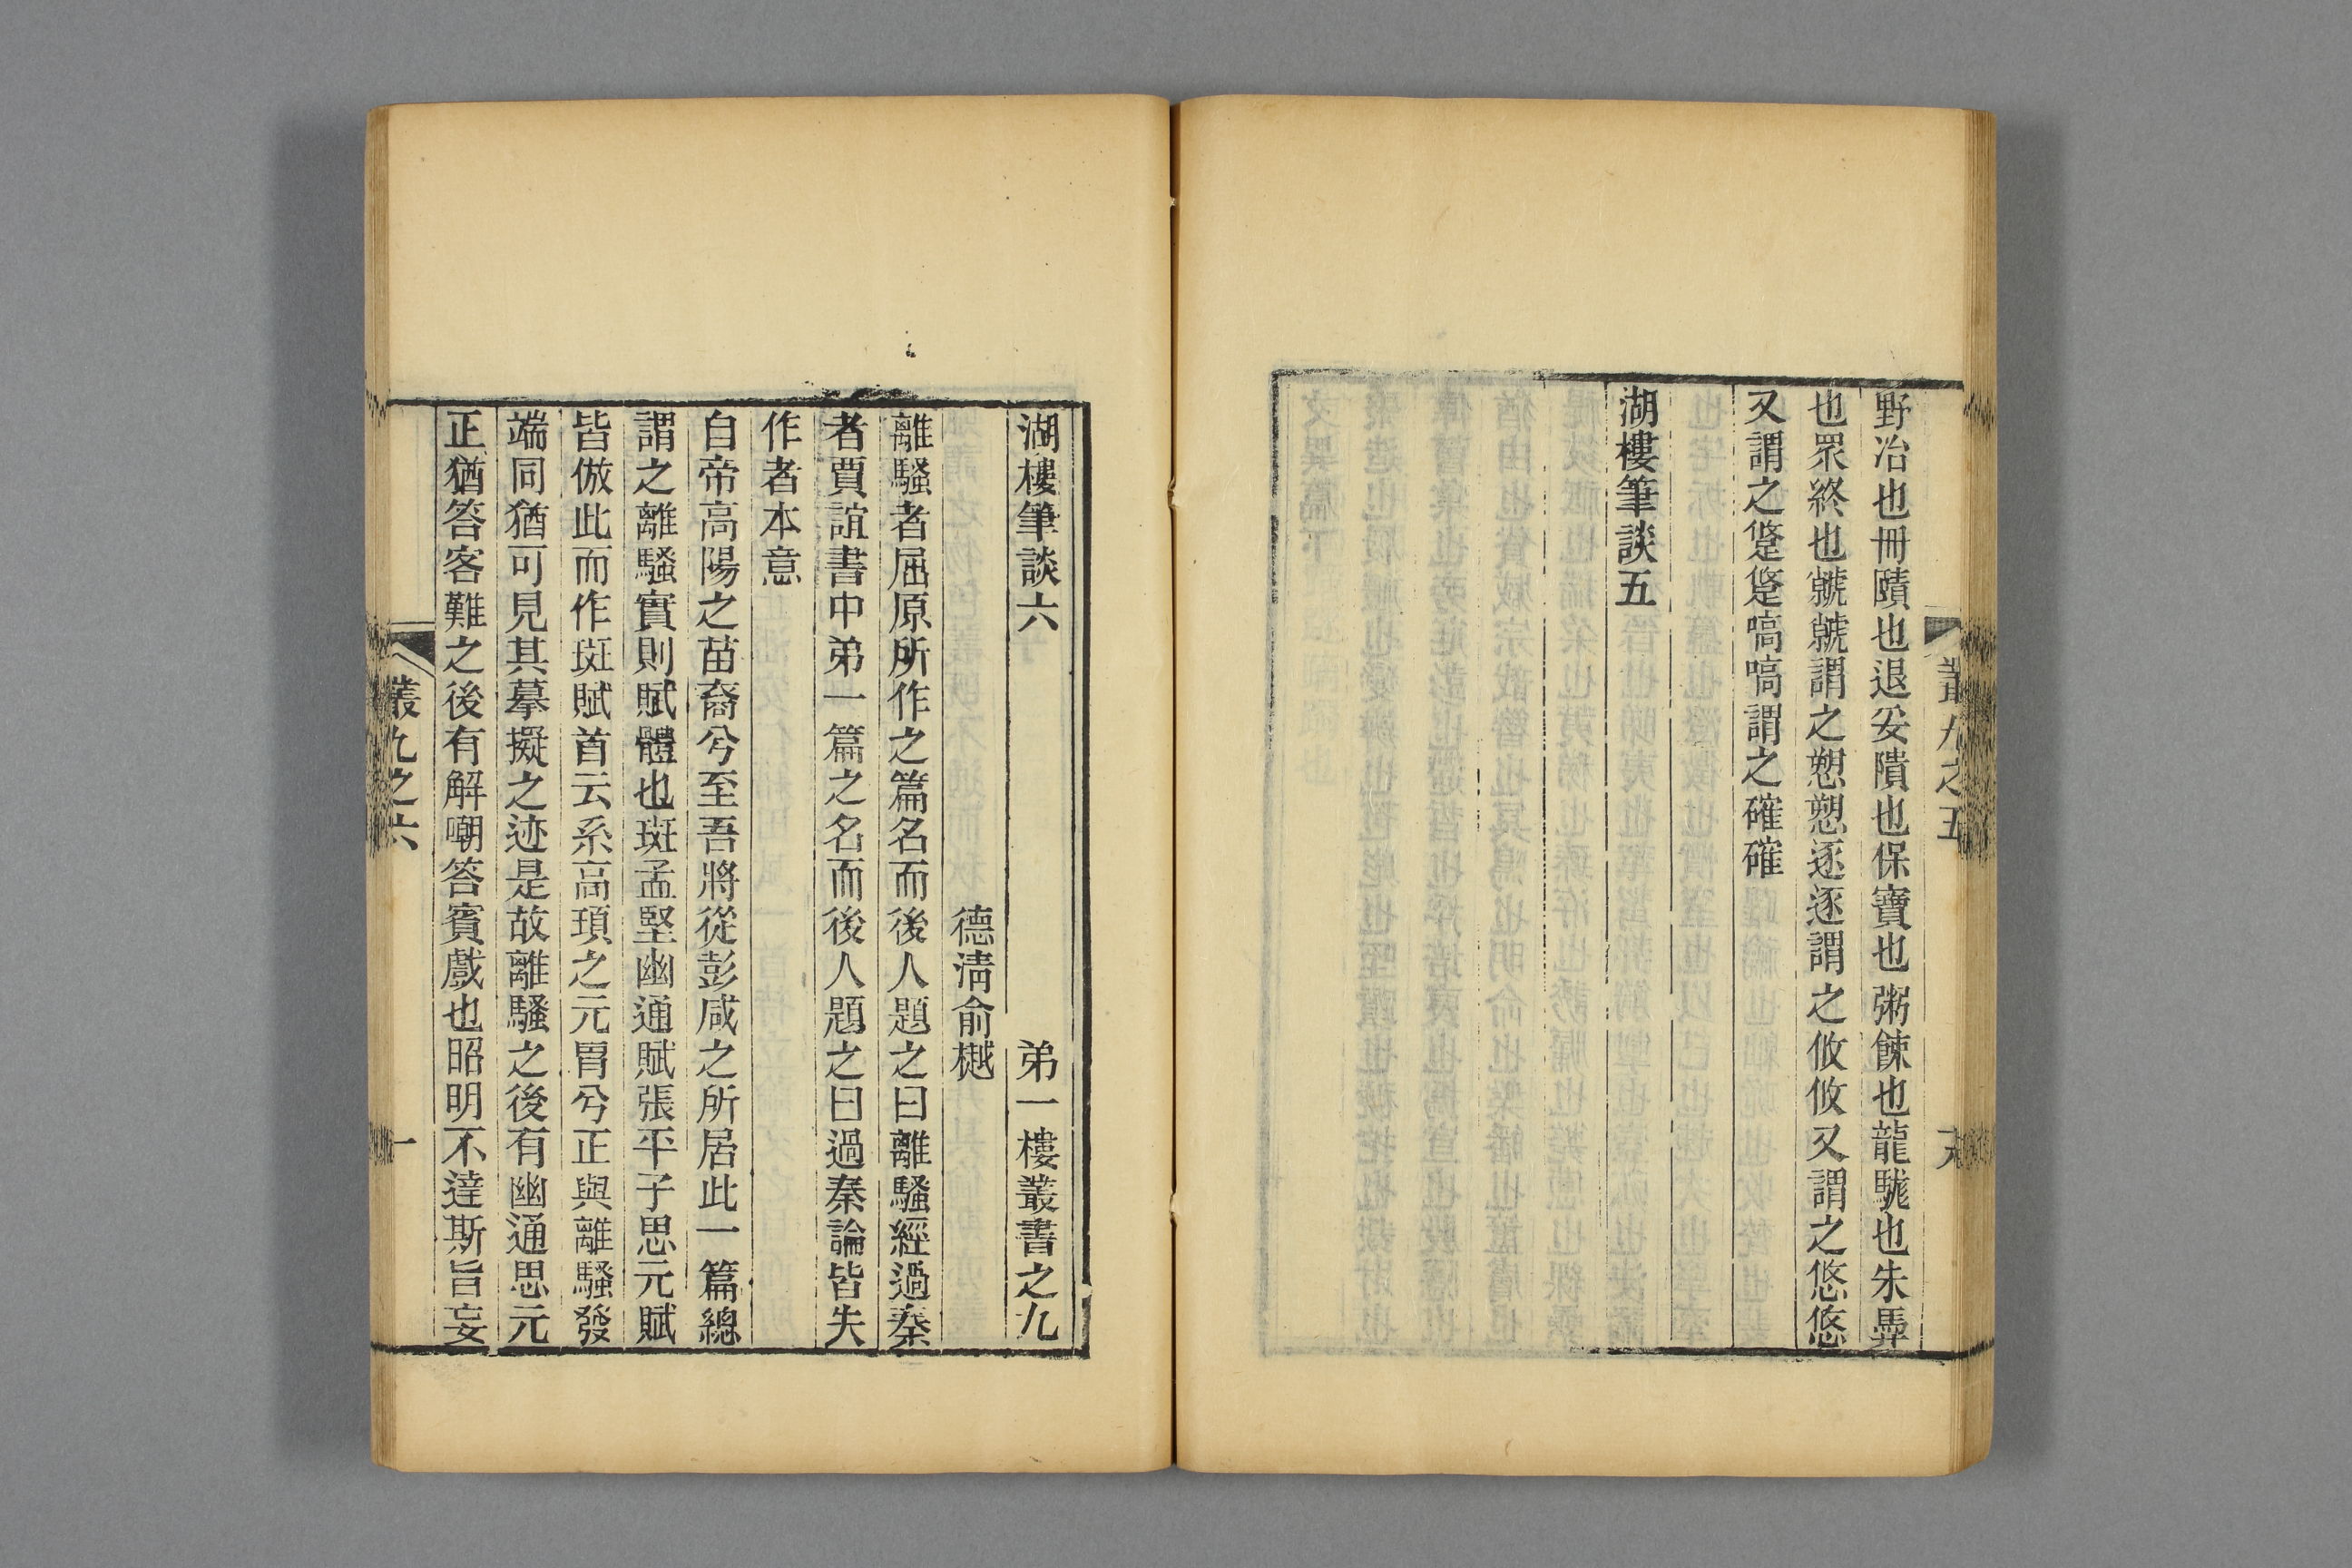 野冶也冊賾也退妥隤也保寶也粥餗也龍駹也朱馵
也眔終也虩虩謂之愬愬逐逐謂之攸攸又謂之悠悠
又謂之躗躗嗃嗃謂之確確
湖樓筆談五
叢九之五
末
湖樓筆談六　弟一樓叢書之九
德淸俞樾
離騷者屈原所作之篇名而後人題之曰離騷經過秦
者賈誼書中弟一篇之名而後人題之曰過秦論皆失
作者本意
自帝高陽之苗裔兮至吾將從彭咸之所居此一篇總
謂之離騷實則賦體也斑孟堅幽通賦張平子思元賦
皆倣此而作斑賦首云系高頊之元胄兮正與離騷發
端同猶可見其摹擬之迹是故離騷之後有幽通思元
正猶答客難之後有解嘲答賓戲也昭明不達斯旨妄
叢九之六
一